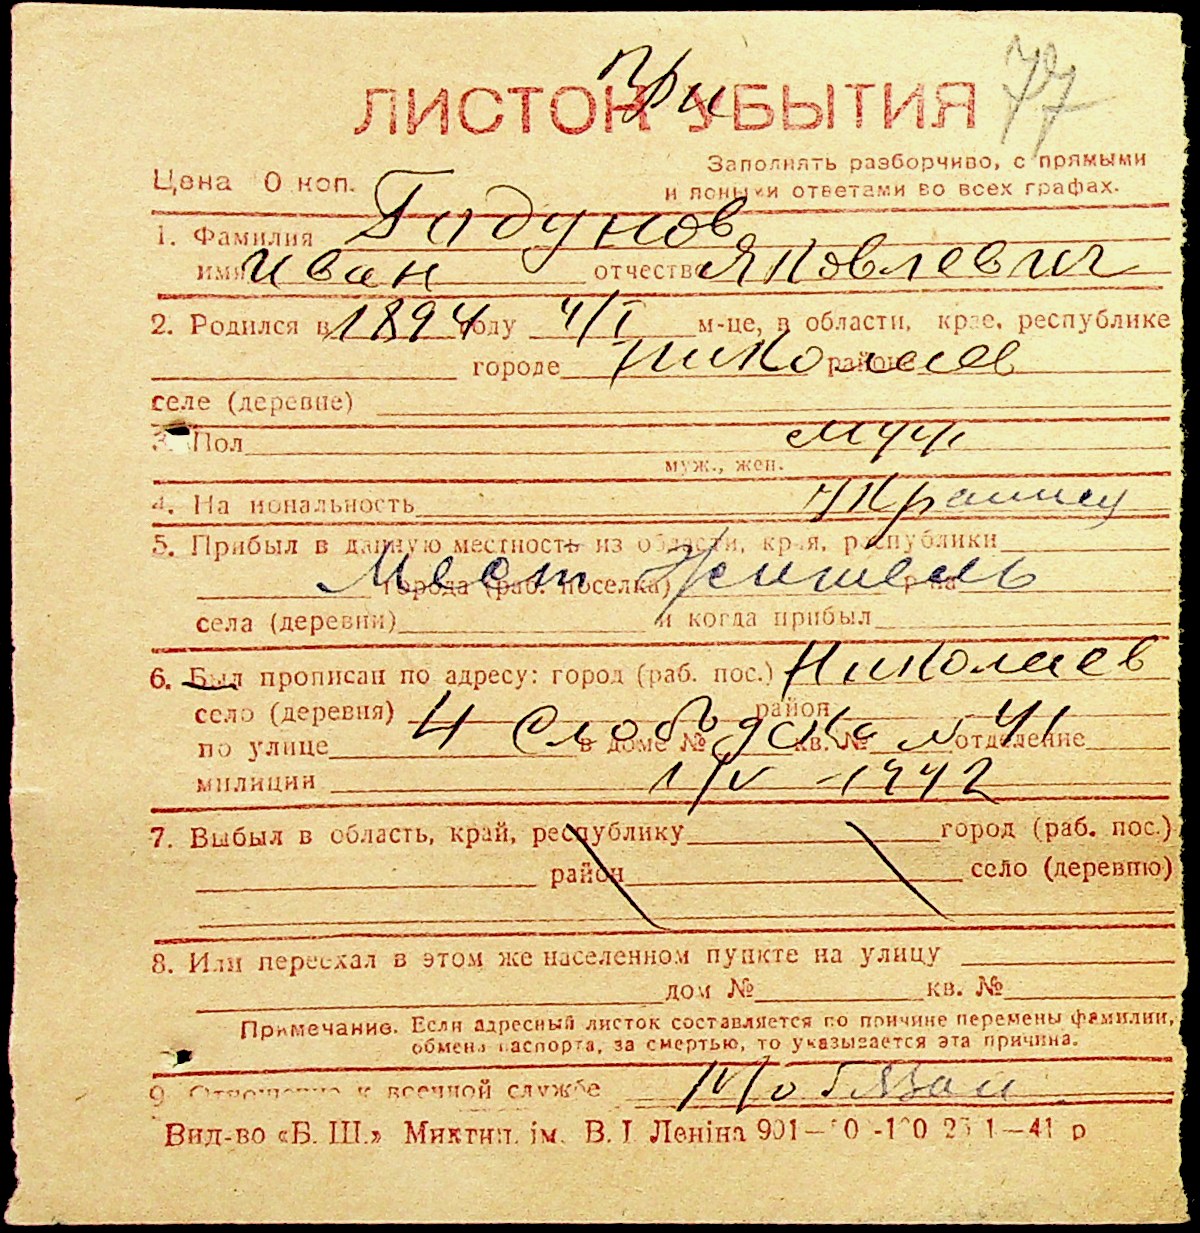 При
77
ЛИСТОК УБЫТИЯ
Заполнять разборчиво, с прямыми
Цена 0 коп.
и ясными ответами во всех графах.
1. Фамилия Годунов
имя Иван отчество Яковлевич
2. Родился в 1894 году 4/I м-це, в области, крае, республике
городе Николаев районе
селе (деревне)
3. Пол муж
муж., жен.
4. Национальность Украинец
5. Прибыл в данную местность из области, края, республики
Мест житель
города (раб. поселка) р-на
села (деревни) и когда прибыл
6. Был прописан по адресу: город (раб. пос.) Николаев
село (деревня) район
по улице 4 Слободская в доме № 41 кв. № отделение
милиции 1/V - 1942
7. Выбыл в область, край, республику город (раб. пос.)
район село (деревню)
8. Или переехал в этом же населенном пункте на улицу
дом № кв. №
Примечание. Если адресный листок составляется по причине перемены фамилии,
обмена паспорта, за смертью, то указывается эта причина.
9. Отношение к военной службе
Вид-во «Б. Ш.» Миктип. ім. В. І. Леніна 901— 41 р